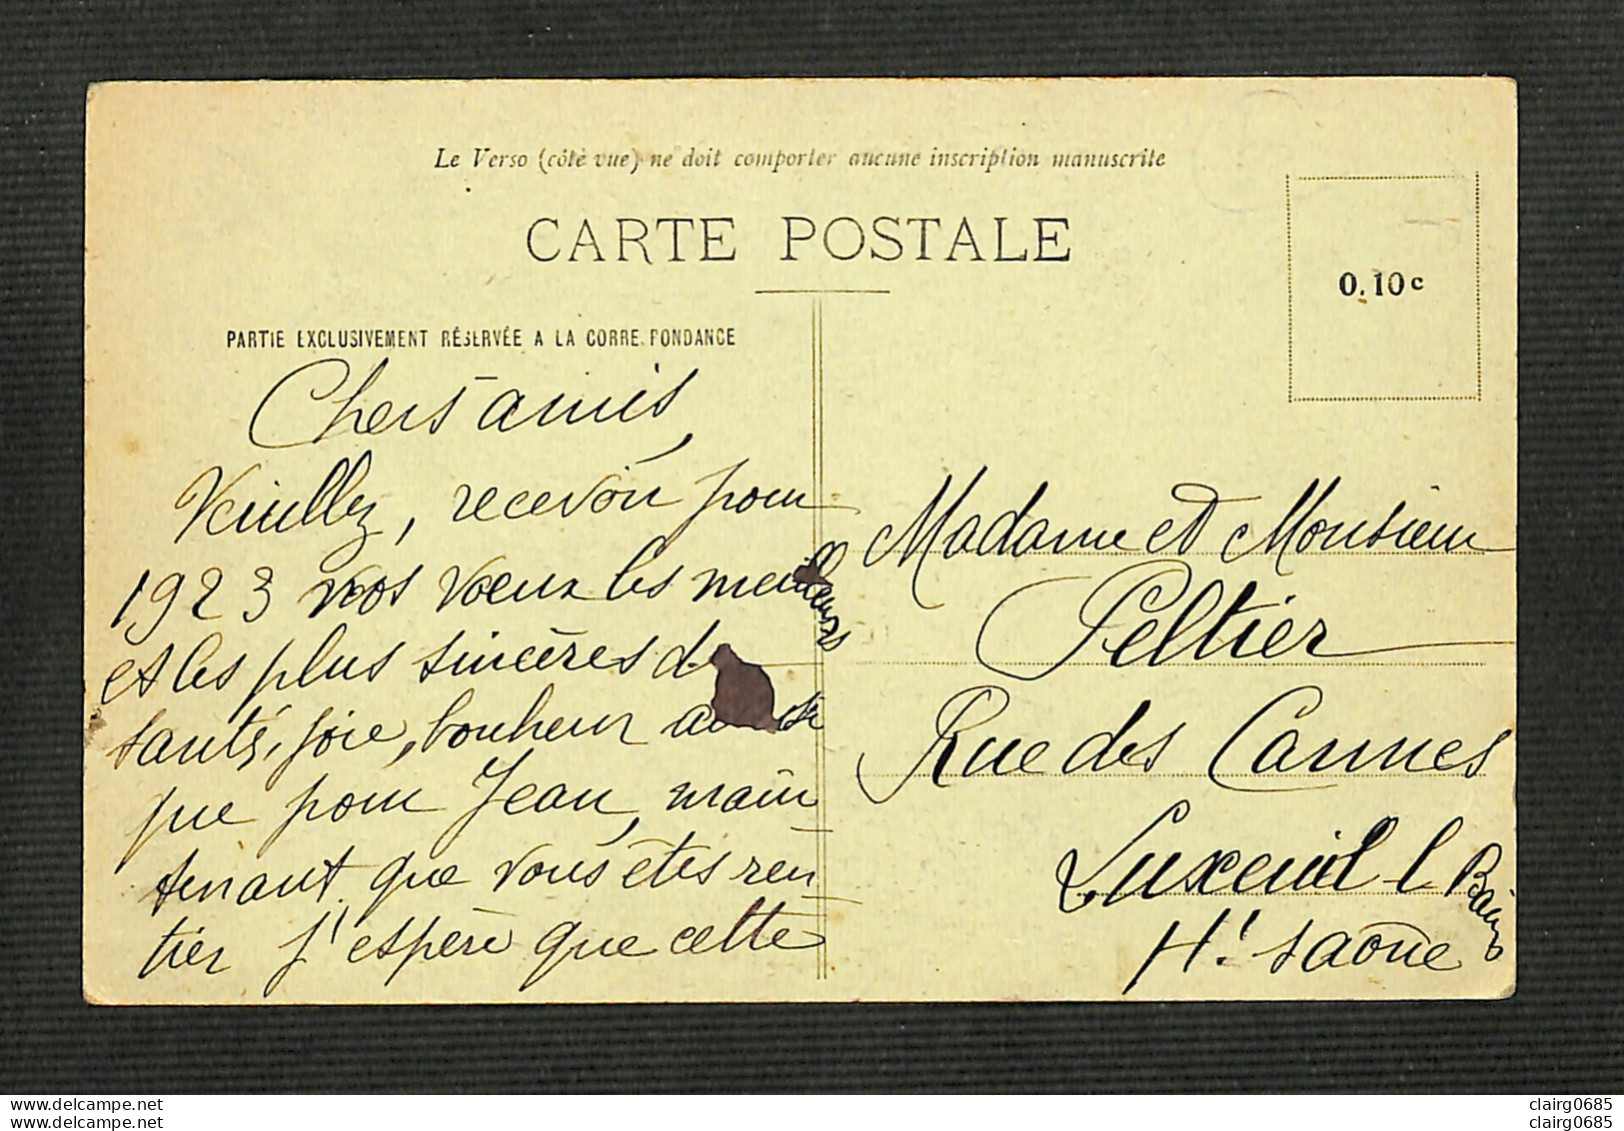 Le Verso (côté vue) ne doit comporter aucune inscription manuscrite
CARTE POSTALE
0.10c
PARTIE EXCLUSIVEMENT RÉSERVÉE A LA CORRE PONDANCE
Chers amis,
Veuillez, recevoir pour
1923 nos vœux les meilleurs
et les plus sincères de
santé, joie, bonheur ainsi
que pour Jean, main
tenant que vous êtes ren
tier J'espère que cette
Madame et Monsieur
Peltier
Rue des Cannes
Luxeuil l Bains
Hte Saône
www.delcampe.net
clairg0685